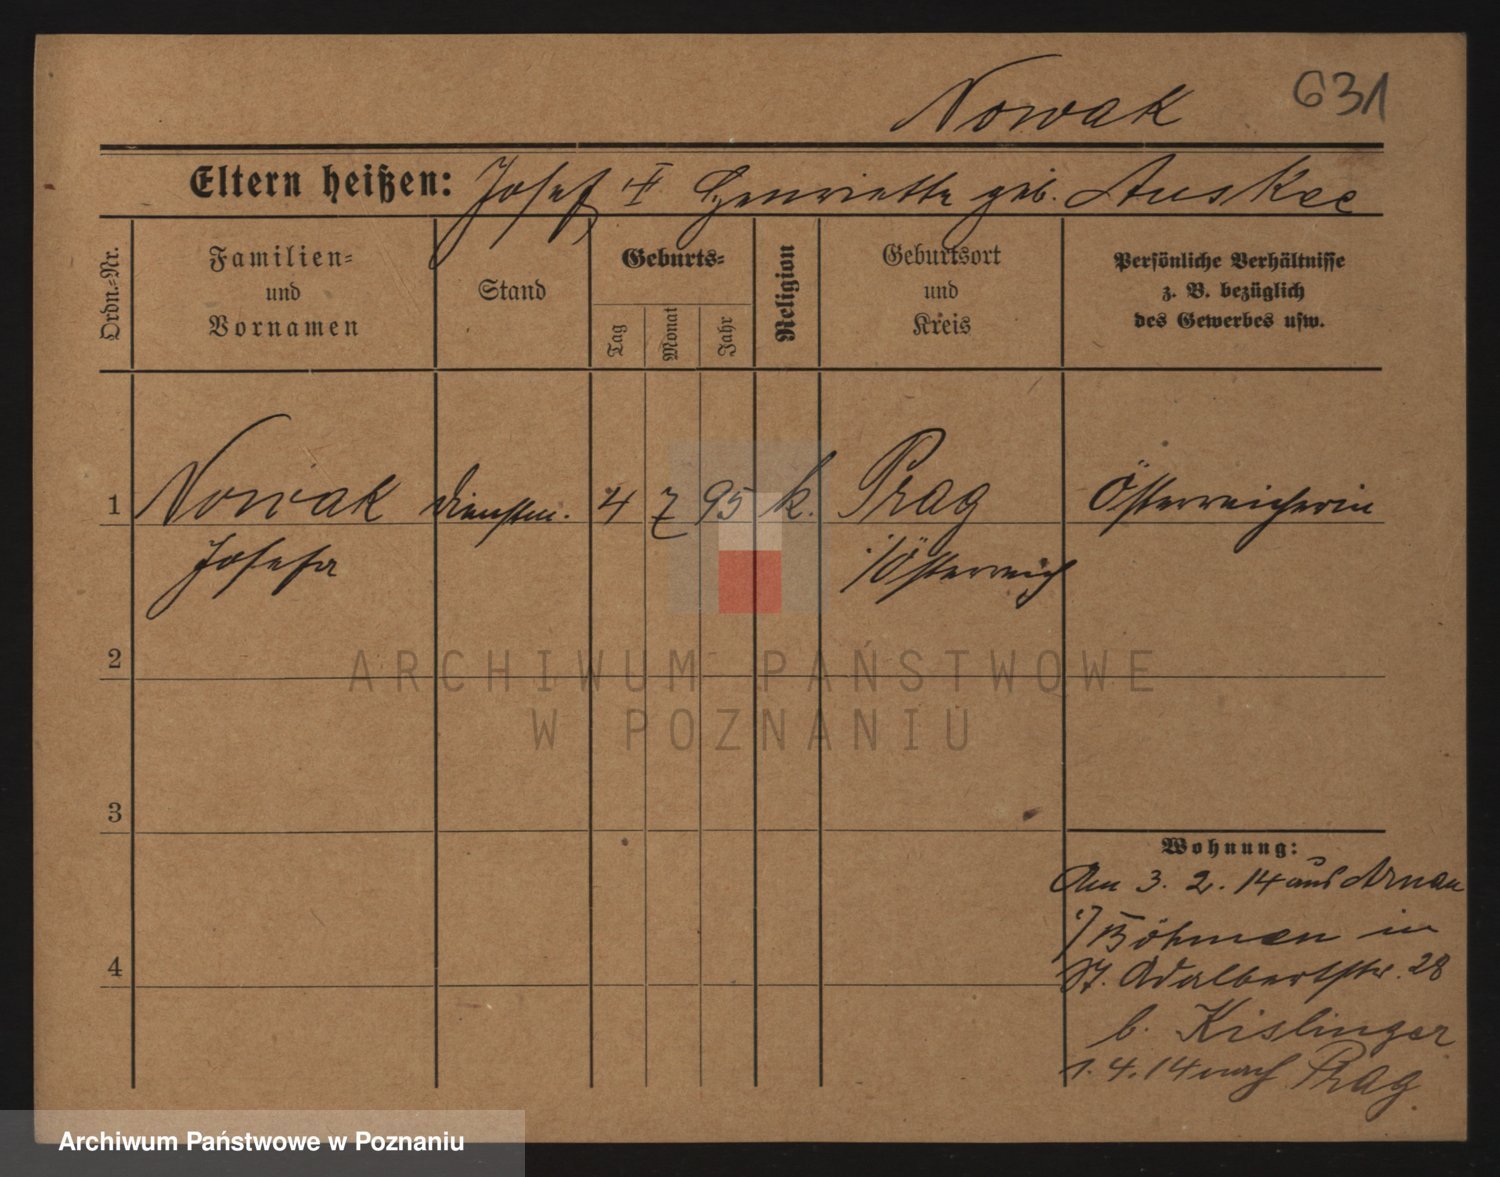 Nowak 631
Eltern heißen: Josef u Henriette geb. Auskee
Ordn.=Nr.
Familien=
und
Vornamen
Stand
Geburts=
Tag
Monat
Jahr
Religion
Geburtsort
und
Kreis
Persönliche Verhältnisse
z. B. bezüglich
des Gewerbes usw.
1 Nowak 4 7 95 k. Prag Österreicherin
Josefa i/Österreich
2
ARCHIWUM PAŃSTWOWE
W POZNANIU
3
Wohnung:
Am 3. 2. 14 aus Arnau
i/Böhmen in
St. Adalbertstr. 28
4
b. Kislinger
1. 4. 14 nach Prag
Archiwum Państwowe w Poznaniu